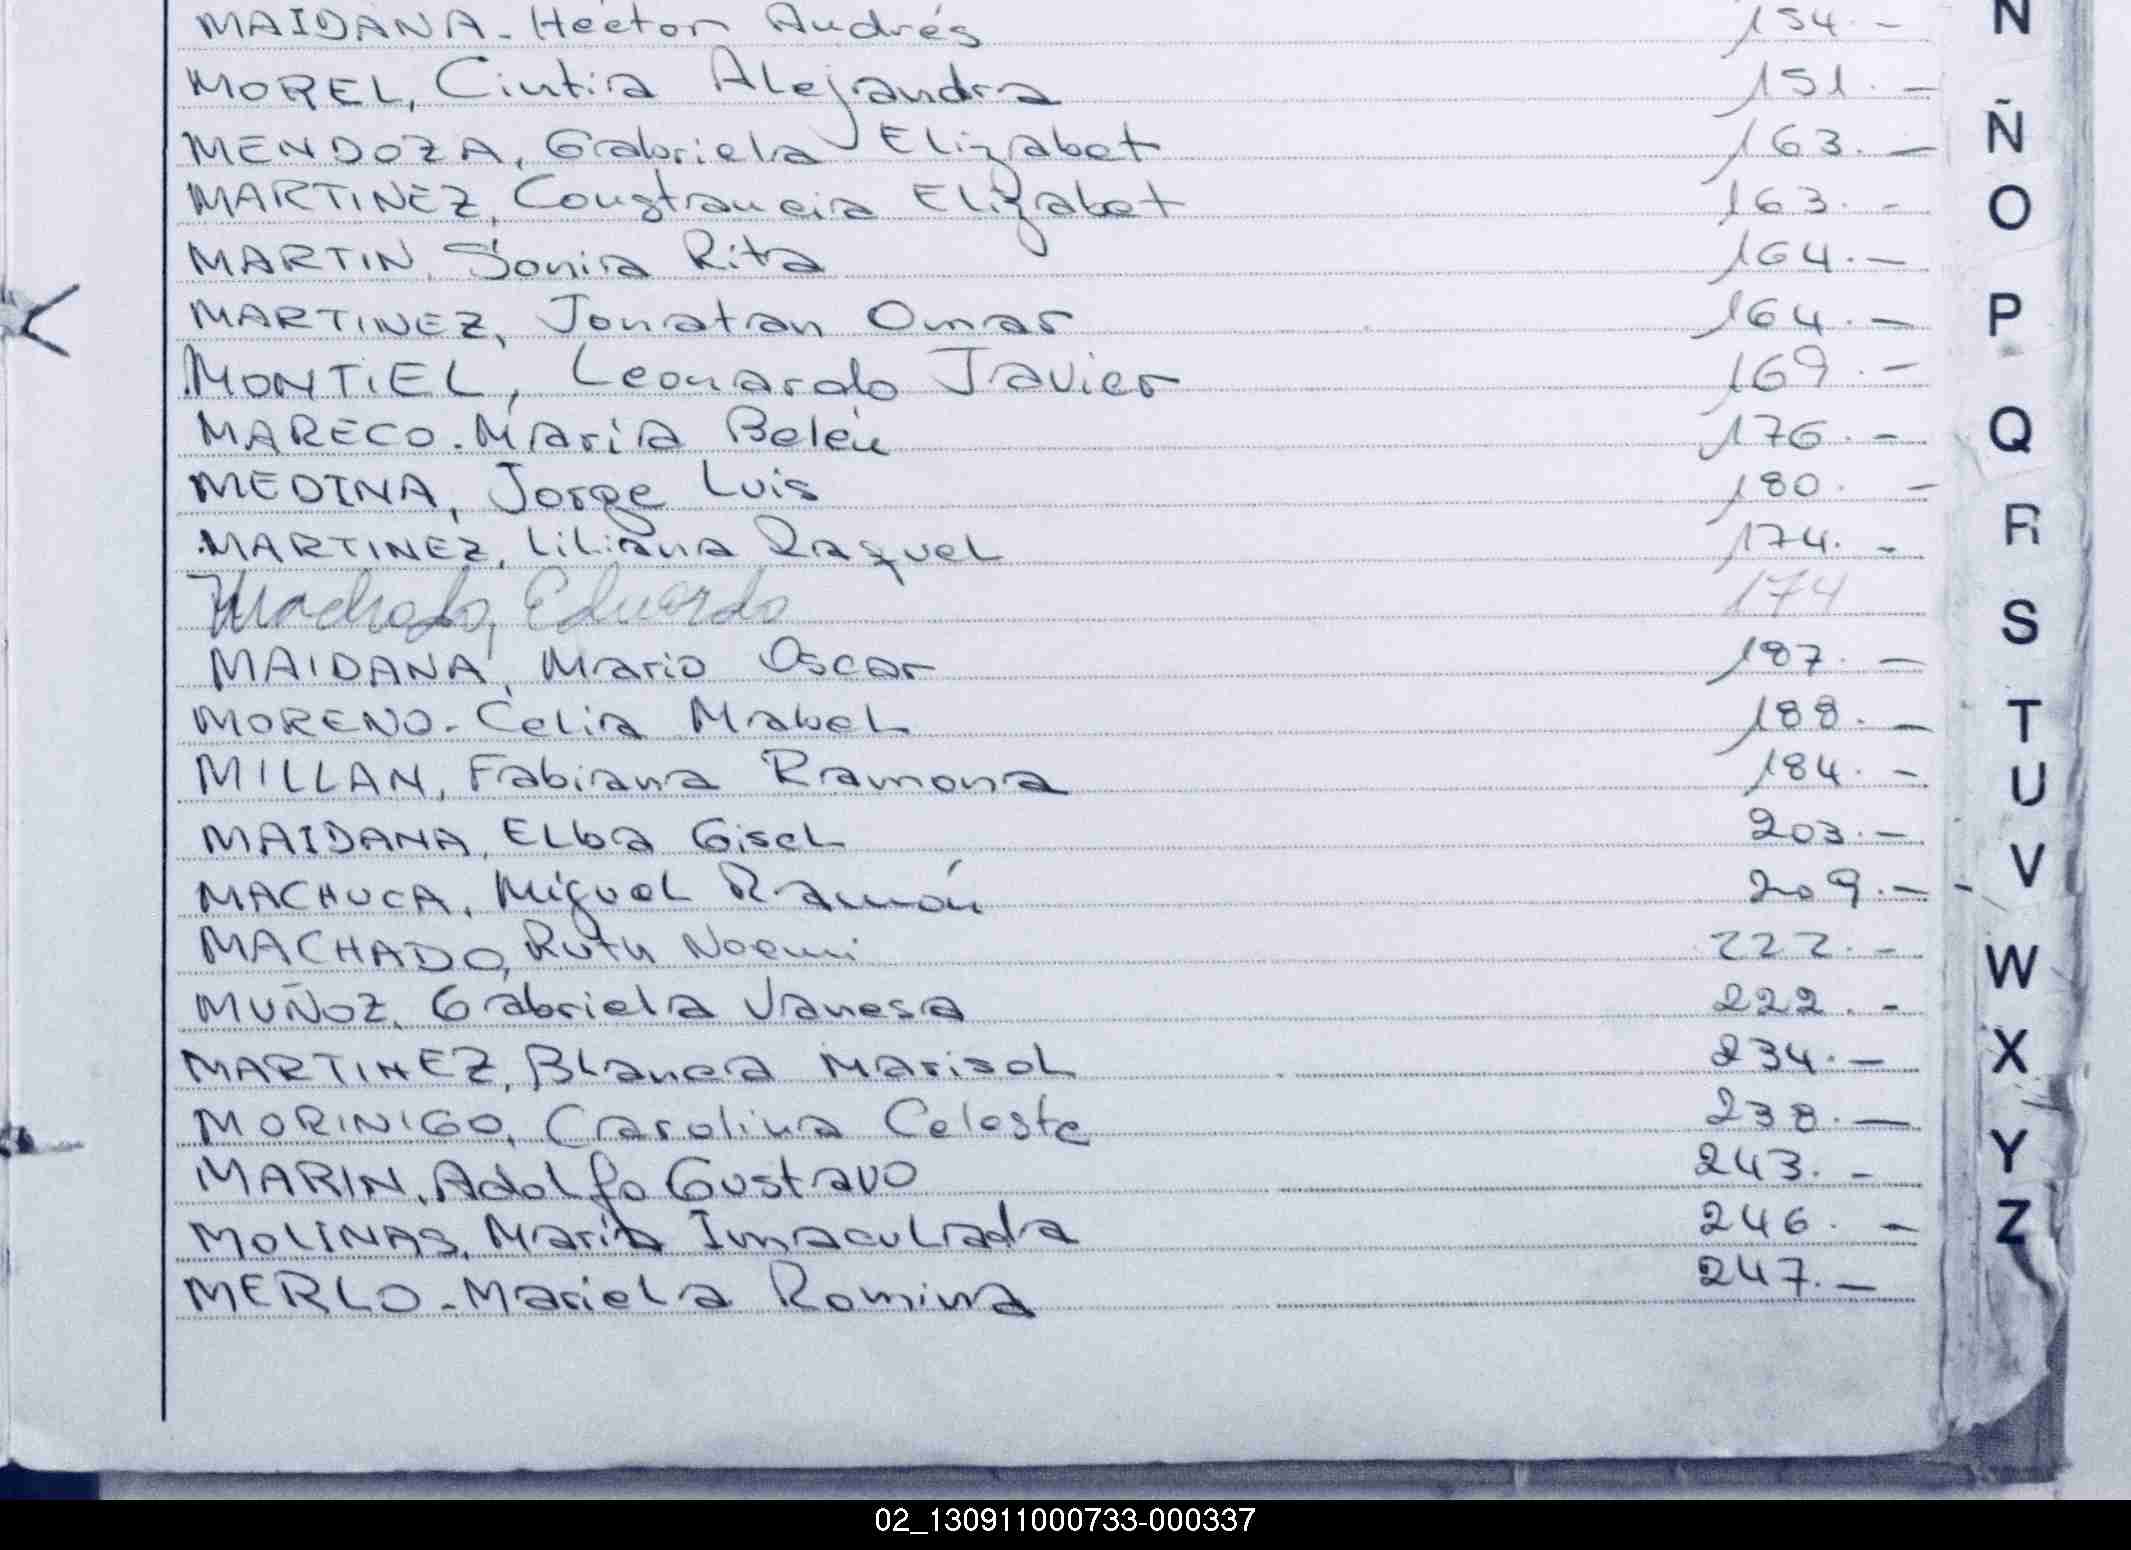 MAIDANA - Héctor Andrés 154.-
MOREL, Cintia Alejandra 151.-
MENDOZA, Gabriela Elizabet 163.-
MARTINEZ, Constancia Elizabet 163.-
MARTIN, Sonia Rita 164.-
MARTINEZ, Jonatan Omar 164.-
MONTIEL, Leonardo Javier 169.-
MARECO. María Belén 176.-
MEDINA, Jorge Luis 180.-
MARTINEZ, Liliana Raquel 174.-
Machado, Eduardo 174
MAIDANA, Mario Oscar 187.-
MORENO - Celia Mabel 188.-
MILLAN, Fabiana Ramona 184.-
MAIDANA, Elba Gisel 203.-
MACHUCA, Miguel Ramón 209.-
MACHADO, Ruth Noemi 222.-
MUÑOZ, Gabriela Vanesa 222.-
MARTINEZ, Blanca Marisol 234.-
MORINIGO, Carolina Celeste 238.-
MARIN, Adolfo Gustavo 243.-
MOLINAS, María Imaculada 246.-
MERLO - Mariela Romina 247.-
N
Ñ
O
P
Q
R
S
T
U
V
W
X
Y
Z
02_130911000733-000337